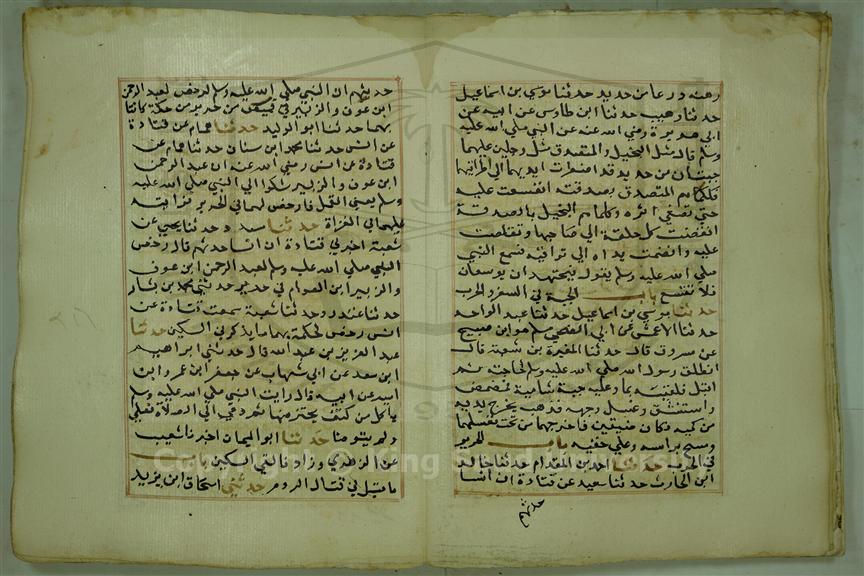 رهنه درعا من حديد حدثنا موسي بن اسماعيل
حدثنا وهيب حدثنا ابن طاوس عن ابيه عن
ابي هريرة رضي الله عنه عن النبي صلي الله عليه
وسلم قال مثل البخيل والمتصدق مثل رجلين عليهما
جبتان من حديد قد اضطرت ايديهما الي تراقيهما
فكلما هم المتصدق بصدقته اتسعت عليه
حتي تعفي اثره وكلما هم البخيل بالصدقة
انقبضت كل حلقة الي صاحبها وتقلصت
عليه وانضمت يداه الي تراقيه فسمع النبي
صلي الله عليه وسلم يقول فيجتهد ان يوسعها
فلا تتسع باب الجبة في السفر والحرب
حدثنا موسي بن اسماعيل حدثنا عبد الواحد
حدثنا الاعمش عن ابي الضحي مسلم هو ابن صبيح
عن مسروق قال حدثنا المغيرة بن شعبة قال
انطلق رسول الله صلي الله عليه وسلم لحاجته ثم
اقبل فلقيته بماء وعليه جبة شامية فمضمض
واستنشق وغسل وجهه فذهب يخرج يديه
من كميه فكان ضيقين فاخرجهما من تحت فغسلهما
ومسح براسه وعلي خفيه باب الحرير
في الحرب حدثنا احمد بن المقدام حدثنا خالد
ابن الحارث حدثنا سعيد عن قتادة ان انسا
حدثهم
حدثهم ان النبي صلي الله عليه وسلم رخص لعبد الرحمن
ابن عوف والزبير في قميص من حرير من حكة كانتا
بهما حدثنا ابو الوليد حدثنا همام عن قتادة
عن انس حدثنا محمد ابن سنان حدثنا همام عن
قتادة عن انس رضي الله عنه ان عبد الرحمن
ابن عوف والزبير شكوا الي النبي صلي الله عليه
وسلم يعني القمل فارخص لهما في الحرير فرايته
عليهما في الغزاة حدثنا مسدد حدثنا يحيي عن
شعبة اخبرني قتادة ان انسا حدثهم قال رخص
النبي صلي الله عليه وسلم لعبد الرحمن ابن عوف
والزبير ابن العوام في حرير حدثني محمد بن بشار
حدثنا غندر حدثنا شعبة سمعت قتادة عن
انس رخص لحكة بهما ما يذكر في السكين حدثنا
عبد العزيز بن عبد الله قال حدثني ابراهيم
ابن سعد عن ابي شهاب عن جعفر ابن عمرو ابن
امية عن ابيه قال رايت النبي صلي الله عليه وسلم
ياكل من كتف يحتز منها ثم دعي الي الصلاة فصلي
ولم يتوضا حدثنا ابو اليمان اخبرنا شعيب
عن الزهري وزاد فالقي السكين باب
ما قيل في قتال الروم حدثني اسحاق ابن يزيد
Copyright © King Saud University